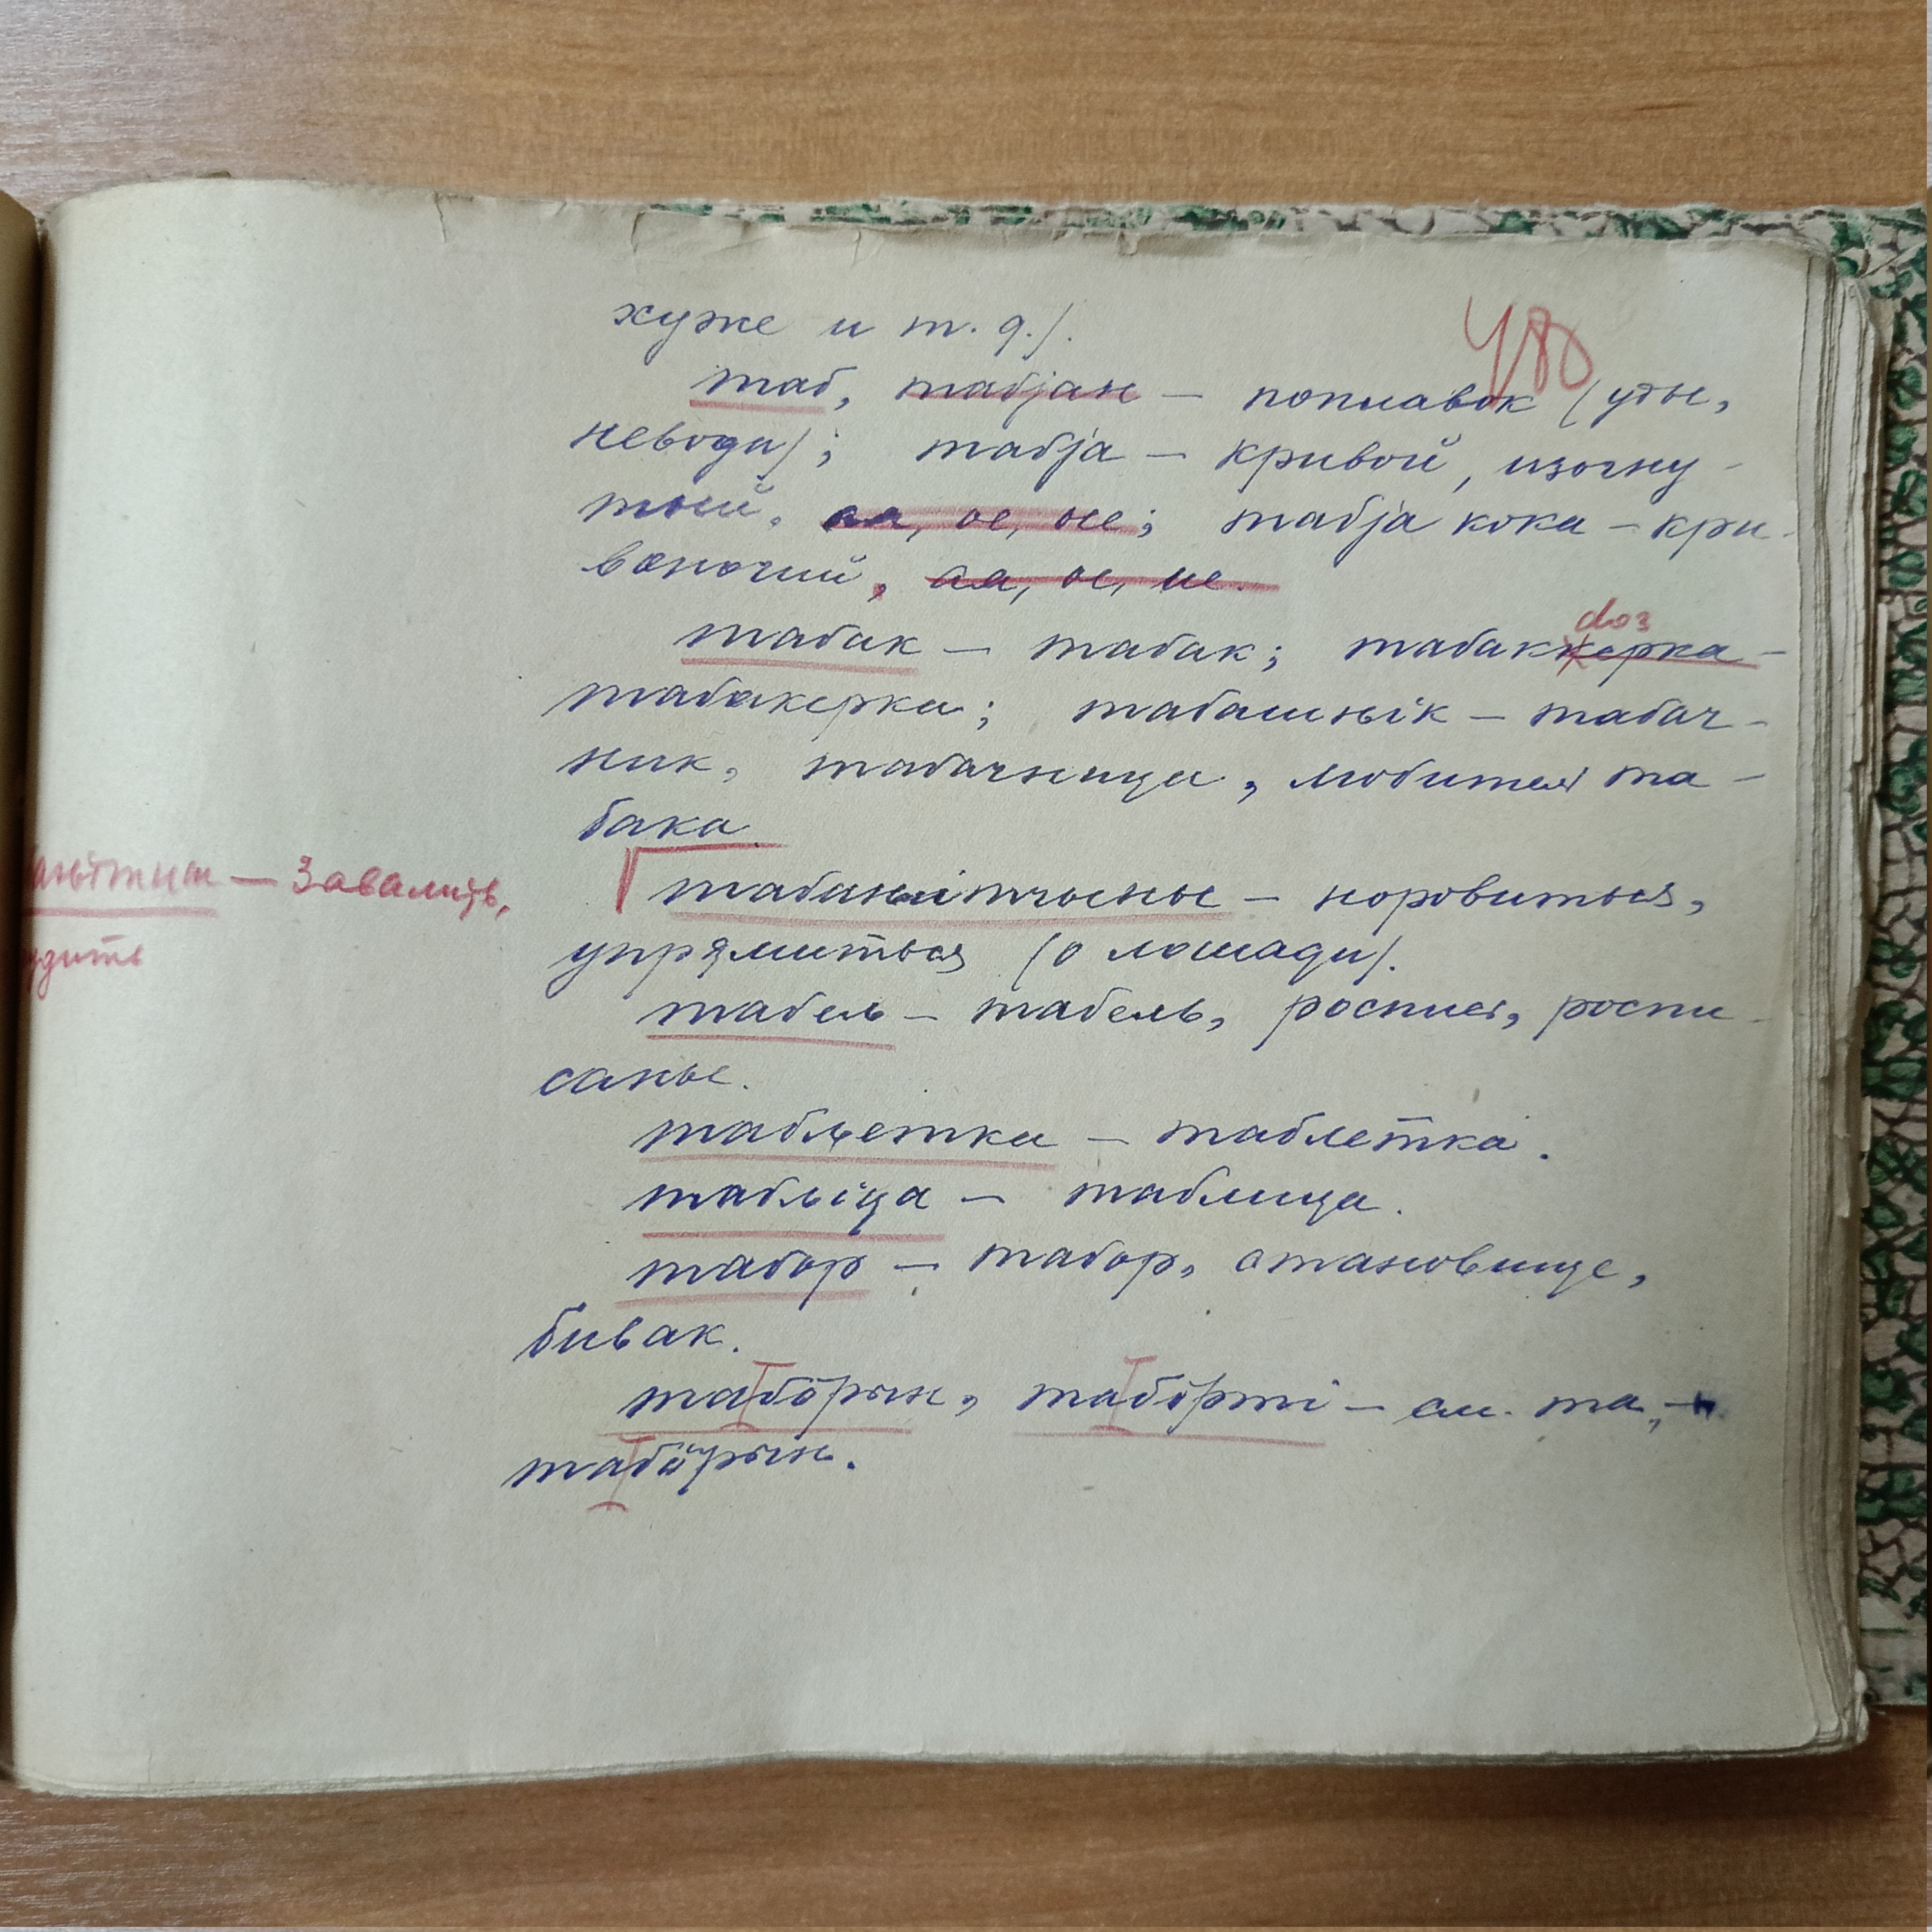 480
хуже и т. д.).
таб, табјан — поплавок (уды,
невода); табја — кривой, изогну-
тый, ая, ое, ые; табја кока — кри-
воногий, ая, ое, ие.
табак — табак; табаккерка доз —
табакерка; табашнік — табач-
ник, табачница, любитель та-
бака.
— завалить,
табаньітчыны — норовиться,
упрямиться (о лошади).
табель — табель, роспись, роспи-
санье.
таблетка — таблетка.
табліца — таблица.
табор — табор, становище,
бивак.
табӧрын, табӧрті — см. та,
табӧрын.